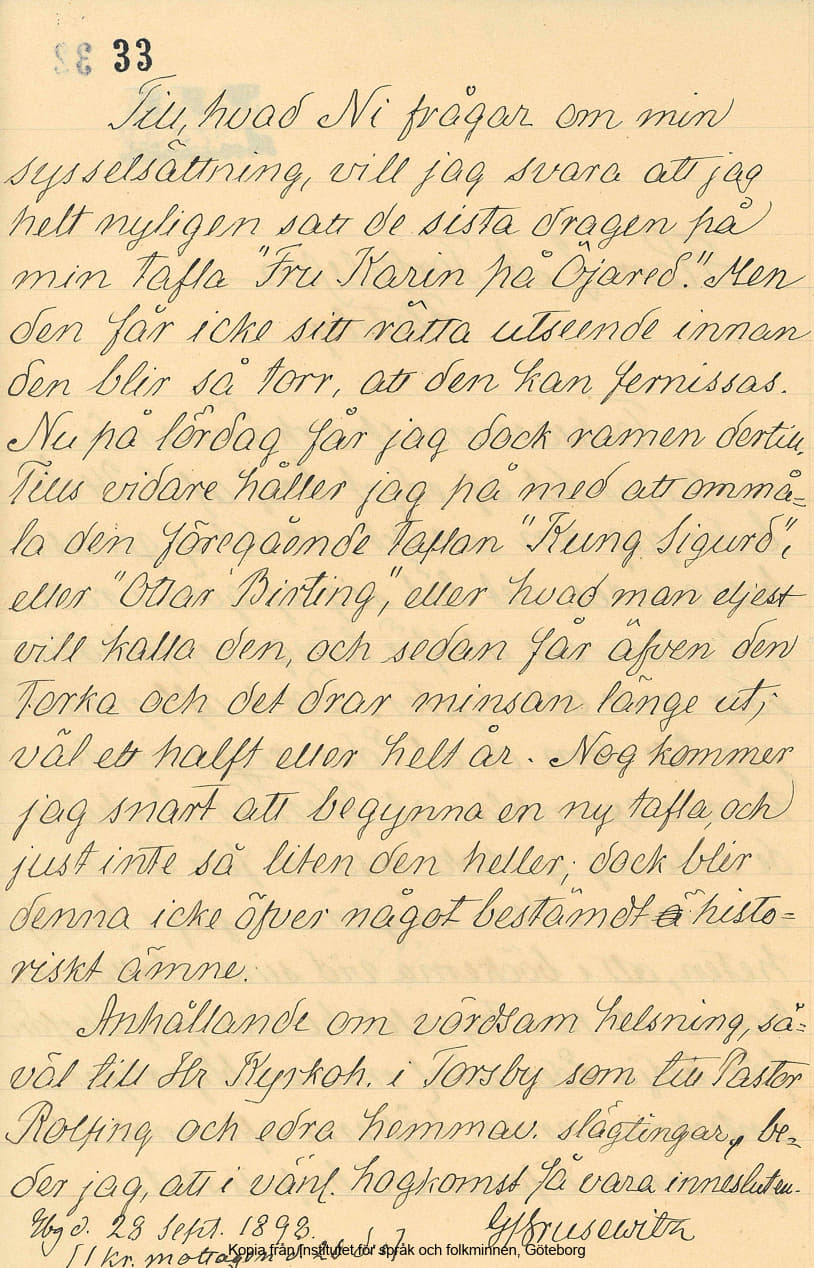 33
Till, hvad Ni frågar om min
sysselsättning, vill jag svara att jag
helt nyligen satt de sista dragen på
min tafla "Fru Karin på Öjared." Men
den får icke sitt rätta utseende innan
den blir så torr, att den kan fernissas.
Nu på lördag får jag dock ramen dertill.
Tills vidare håller jag på med att ommå=
la den föregående taflan "Kung Sigurd",
eller "Ottar Birting", eller hvad man eljest
vill kalla den, och sedan får äfven den
torka och det drar minsan länge ut;
väl ett halft eller helt år. Nog kommer
jag snart att begynna en ny tafla, och
just inte så liten den heller; dock blir
denna icke öfver något bestämdt histo=
riskt ämne.
Anhållande om vördsam helsning, så=
väl till Hr Kyrkoh. i Torsby som till Pastor
Rolfing och edra hemmav. slägtingar, be=
der jag, att i vänl. hogkomst få vara innesluten.
Gbg d. 28 Sept. 1893. G Brusewitz
[1 kr. mottagen d. 26 ds]
Kopia från Institutet för språk och folkminnen, Göteborg